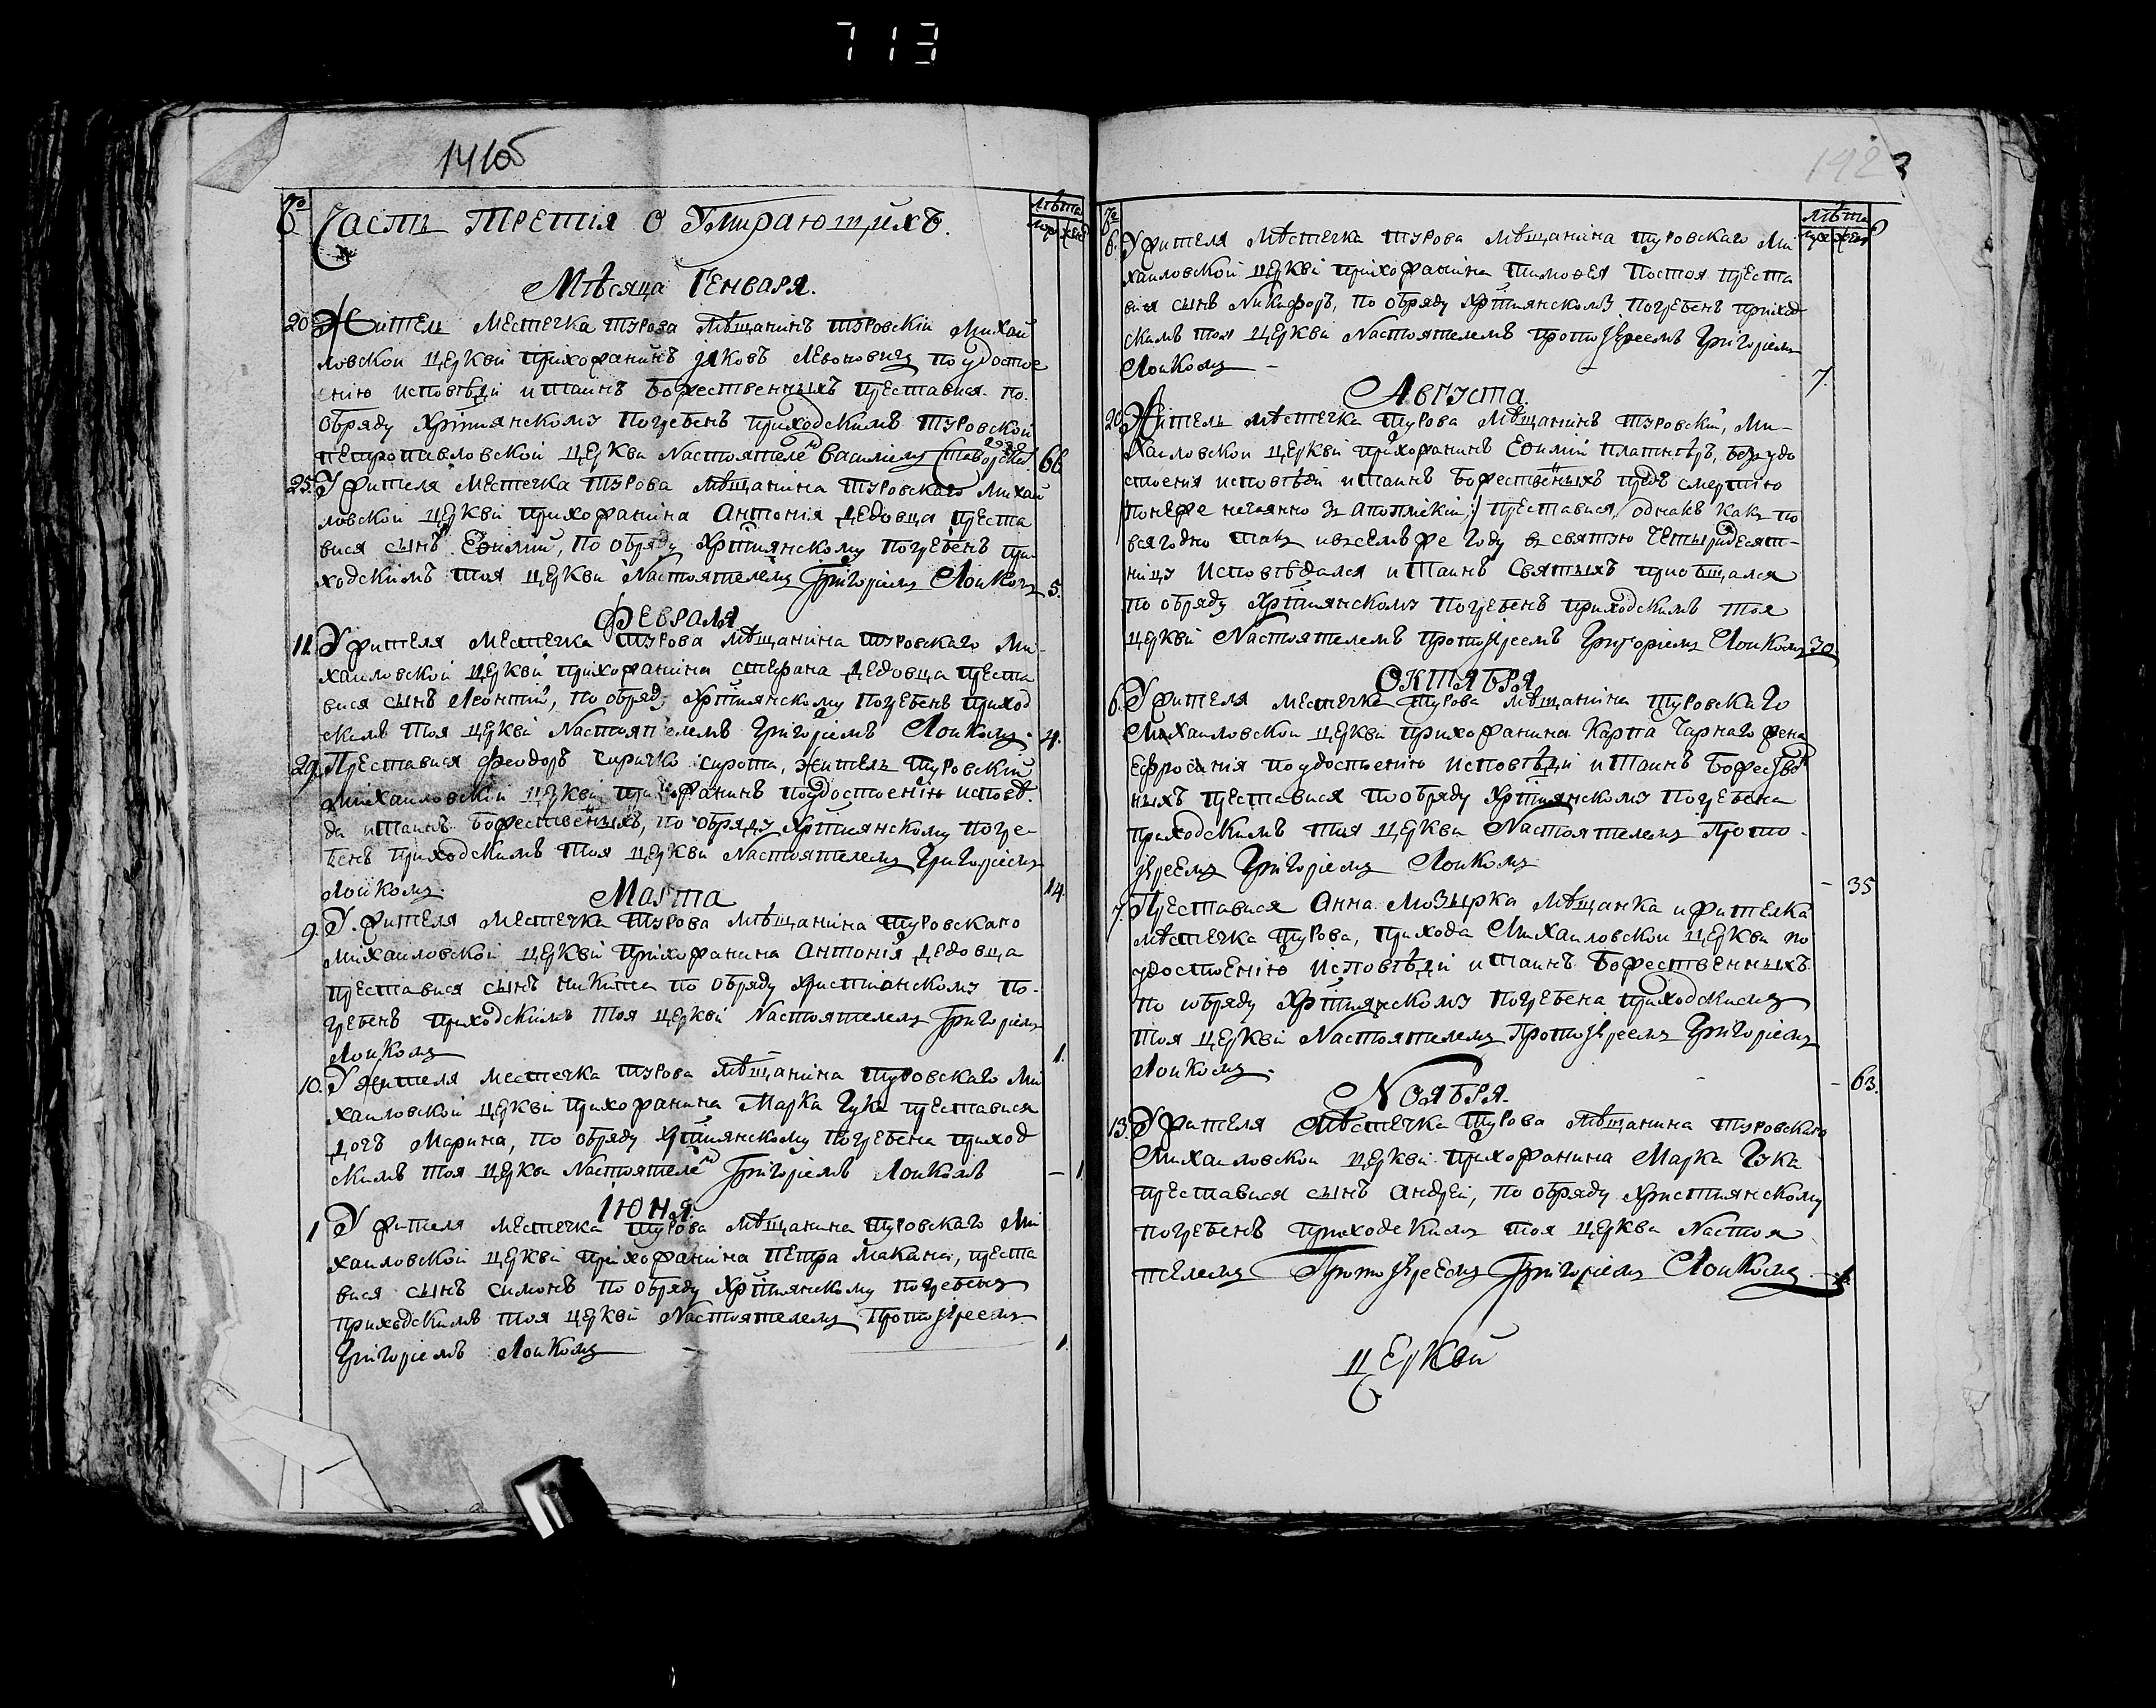 713
141об
№
Часть третія о умирающихъ.
лѣта
муж жен
Мѣсяца Генваря.
20 Житель местечка турова мѣщанинъ туровскій Михай
ловской церкви прихожанинъ іаковъ Левоновичъ по удостое
енію исповѣди и таинъ божественныхъ преставися. по
обряду хрістіянскому погребенъ приходскимъ туровской
петропавловской церкви настоятелемъ Василіемъ 66
25. У жителя местечка турова мѣщанина туровскаго михай
ловской церкви прихожанина Антонія Дедовца преста
вися сынъ Еѳимій, по обряду хрістіянскому погребенъ при
ходскимъ тоя церкви настоятелемъ Григоріемъ Лойкомъ 5.
Февраля
11. У жителя местечка турова мѣщанина туровскаго Ми
хаиловской церкви прихожанина стефана Дедовца преста
вися сынъ Леонтій, по обряду хрістіянскому погребенъ приход
скимъ тоя церкви настоятелемъ Григоріемъ Лойкомъ. 4.
29. Преставися феодоръ сирота, житель туровскій
михаиловскій церкви прихожанинъ поудостоенію исповѣ
ди и таинъ божественныхъ, по обряду хрістіянскому погре-
бенъ приходскимъ тоя церкви настоятелемъ Григоріемъ
Лойкомъ. 14.
Марта
9. У жителя местечка турова мѣщанина туровскаго
михаиловской церкви прихожанина антонія дедовца
преставися сынъ никита по обряду христіанскому по-
гребенъ приходскимъ тоя церкви настоятелемъ Григоріемъ
Лойкомъ 1.
10. У жителя местечка турова мѣщанина туровскаго ми
хаиловской церкви прихожанина Марка Гука преставися
дочь Марина, по обряду хрістіянскому погребена приход
скимъ тоя церкви настоятелемъ Григоріемъ Лойкомъ – 1
Іюня
1 У жителя местечка турова мѣщанина туровскаго ми
хаиловской церкви прихожанина петра макани, преста
вися сынъ симонъ по обряду хрістіянскому погребенъ
приходскимъ тоя церкви настоятелемъ протоіереемъ
Григоріемъ Лойкомъ – 1.
142
№
лѣта
муж жен
6. У жителя мѣстечка турова мѣщанина туровскаго ми
хаиловской церкви прихожанина тимоѳея Постоя преста
вися сынъ никифоръ, по обряду хрістіянскому погребенъ приход
скимъ тоя церкви настоятелемъ протоіереемъ Григоріемъ
Лойкомъ – 7.
Августа.
20. Житель мѣстечка турова мѣщанинъ туровскій, ми-
хаиловской церкви прихожанинъ Еѳимій платнѣръ, безъ удо
стоенія исповѣди и таинъ божественныхъ предъ смертію
понеже нечаянно преставися, однакъ какъ по
всягодно такъ и въ семъ же году въ святую четыридесят-
ницу исповѣдался и таинъ святыхъ приобщался
по обряду хрістіянскому погребенъ приходскимъ тоя
церкви настоятелемъ протоіереемъ Григоріемъ Лойкомъ 30
октября
6. У жителя местечка турова мѣщанина туровскаго
Михаиловской церкви прихожанина Карпа Чарнаго жена
Ефросинія поудостоенію исповѣди и таинъ божестве
ныхъ преставися по обряду хрістіянскому погребена
приходскимъ тоя церкви настоятелемъ прото-
іереемъ Григоріемъ Лойкомъ – 35
7. Преставися Анна Мозырка мѣщанка и жителка
мѣстечка турова, прихода Михаиловской церкви по
удостоенію исповѣди и таинъ божественныхъ.
по обряду хрістіянскому погребена приходскимъ
тоя церкви настоятелемъ протоіереемъ Григоріемъ
Лойкомъ. – 63.
Ноября.
13. У жителя мѣстечка турова мѣщанина туровскаго
Михаиловской церкви прихожанина Марка Гука
преставися сынъ андрей, по обряду християнскому
погребенъ приходскимъ тоя церкви настоя
телемъ Протоіереемъ Григоріемъ Лойкомъ
церкви